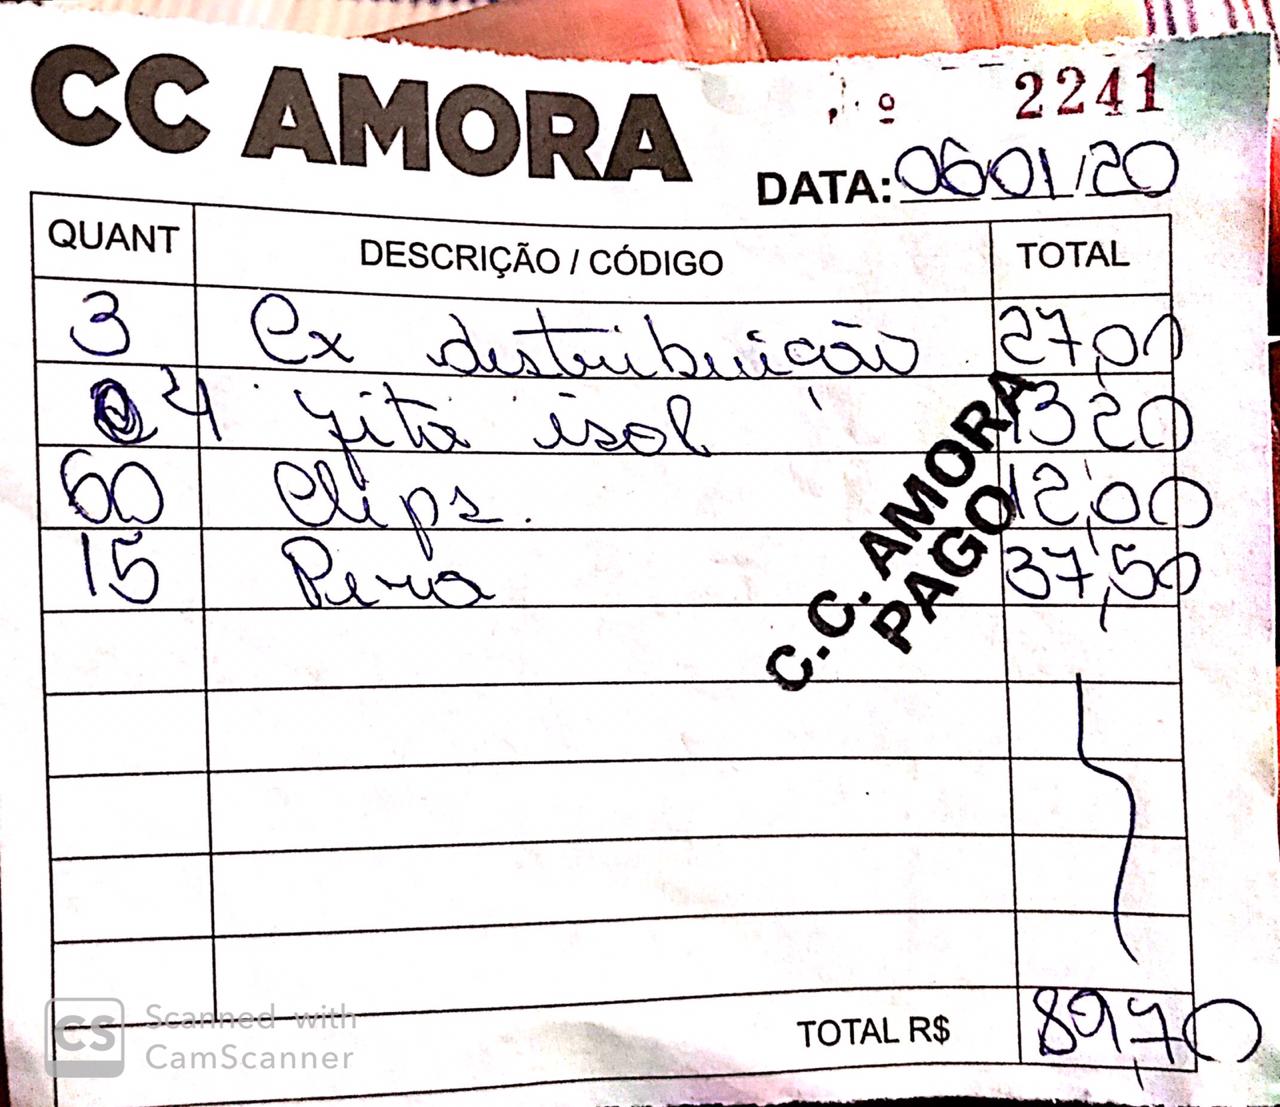 CC AMORA
º 2241
DATA: 06/01/20
QUANT DESCRIÇÃO / CÓDIGO TOTAL
3 Cx distribuição 27,00
24 fita isol 13,20
60 Clips. 12,00
15 Pera 37,50
C.C. AMORA
PAGO
TOTAL R$ 89,70
CS Scanned with
CamScanner